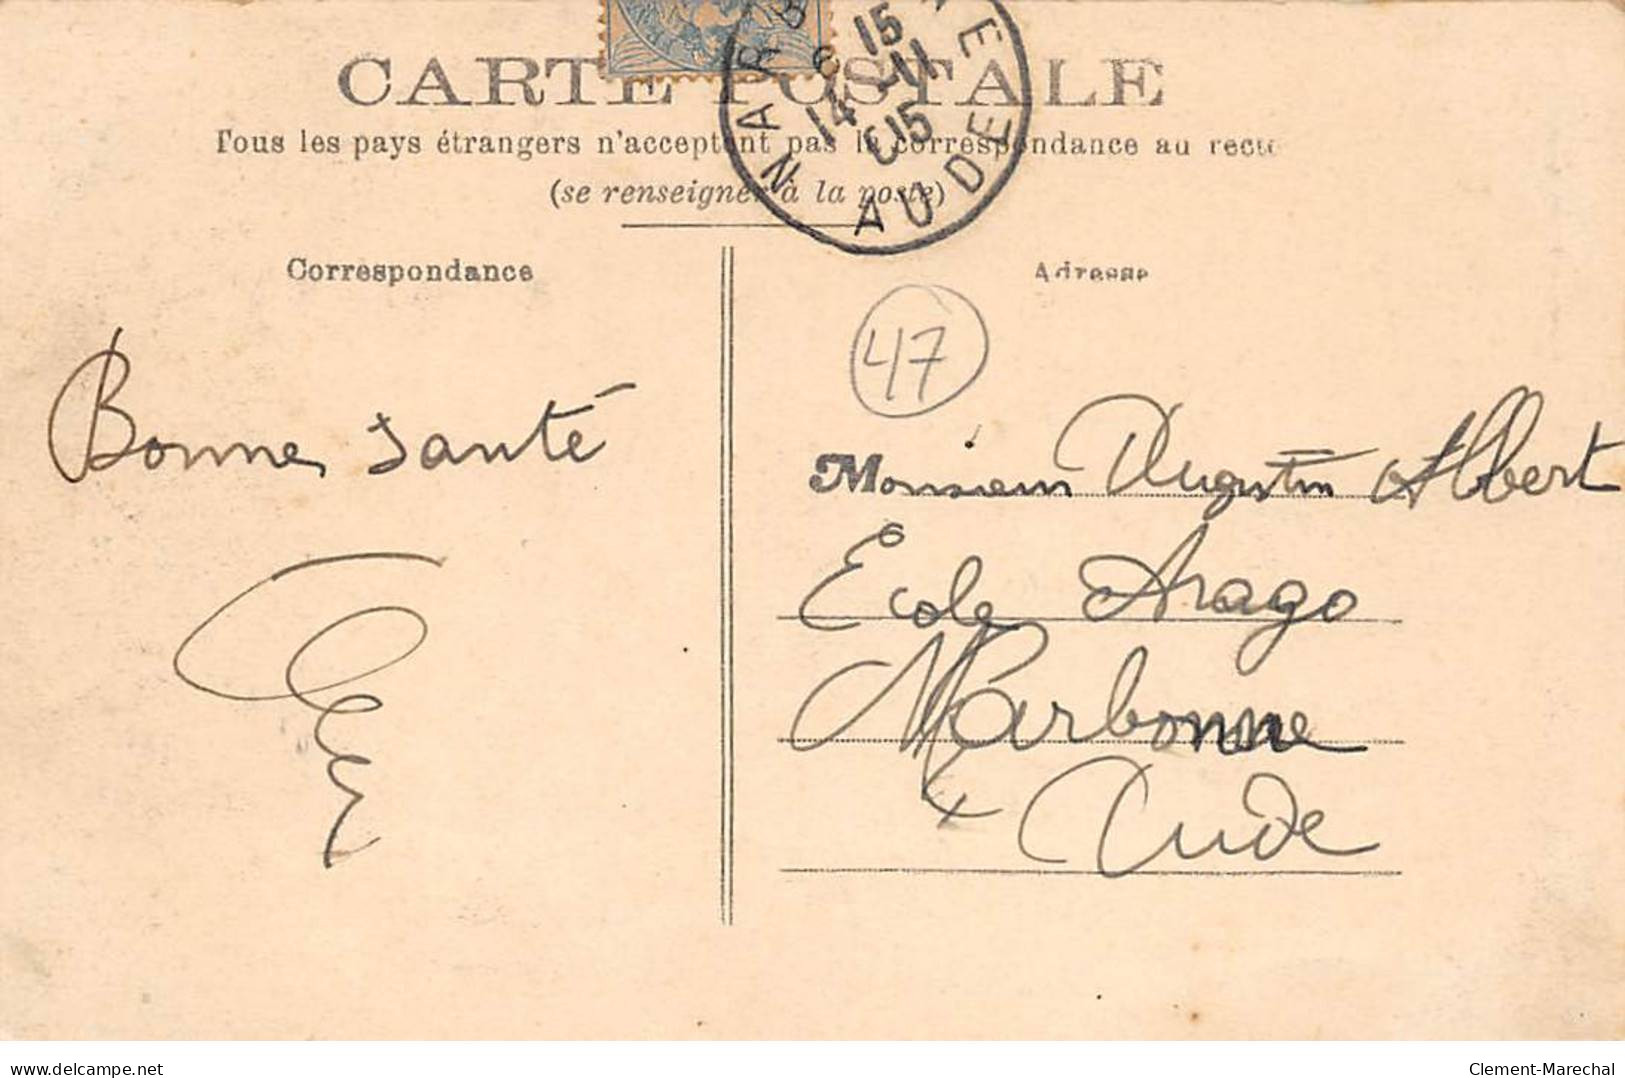 CARTE POSTALE
Tous les pays étrangers n'acceptent pas la correspondance au recto
(se renseigner à la poste)
NARB
15
14 -11
15
AUDE
Correspondance
Adresse
47
Bonne santé
Monsieur Augustin Albert
Ecole Arago
Narbonne
Aude
www.delcampe.net
Clement-Marechal